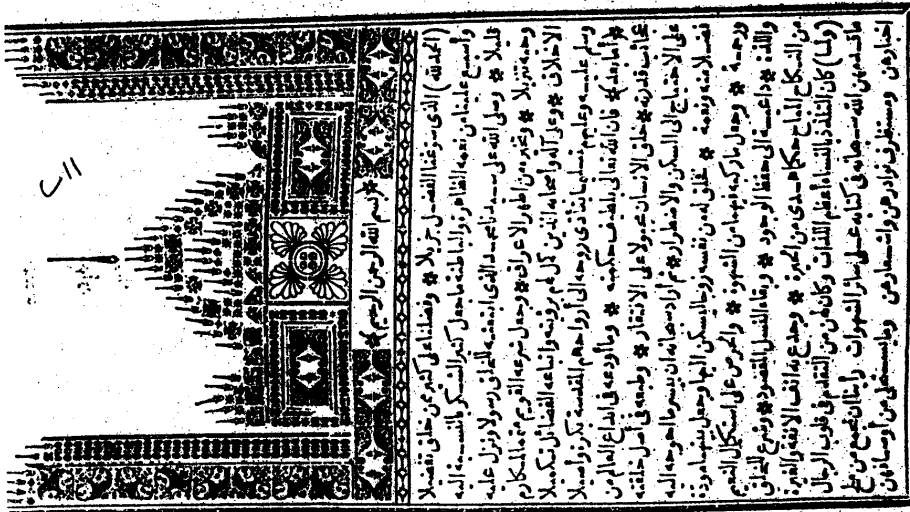 * بسم الله الرحمن الرحيم *
(الحمدلله) الذى سوغنا الفضل جزيلا * وفضلنا على كثير ممن خلق تفضيلا
وأسبغ علينا من نعمه الظاهرة والباطنة ما جعل كثير الشكر بالنسبة اليه
قليلا * وصلى الله على سيدنا محمد الذى ابتعثه للخلق رسولا ونزل عليه
وحيه تنزيلا * وتخيره من أطهر الاعراق * وجعل شرعه القويم متمما لمكارم
الاخلاق * وعلى آله وأصحابه الذين كمل لهم برؤيته واتباعه الفضائل تكميلا
وسلم عليه وعليهم تسليما يتأدى بروحه الى أرواحهم المقدسة بكرة وأصيلا
* (أما بعد) * فان الله تعالى بلطيف حكمته * وما أودعه فى ابداع العالم من
عجائب قدرته * خلق الانسان مجبولا على الافتقار * وطبعه فى أصل خلقته
على الاحتياج الى السكن والاضطرار * ثم أراد سبحانه أن ييسر ما أحوجه اليه
فضلا منه ونعمة * فخلق له من نفسه زوجا ليسكن اليها وجعل بينهما مودة
ورحمة * وجعل ما ركبه فيهما من الشهوة * والحرص على استكمال النعيم
واللذة * داعية الى حفظ الوجود * وبقاء النسل المقصود * وشرع للخلق
من النكاح المباح حكما هدى من الحيرة * وجدع به أنف الانفة والغيرة
(ولما) كان التلذذ بالنساء أعظم اللذات وكان لهن من التقدم فى قلوب الرجال
ما قدمهن الله سبحانه فى كتابه على سائر الشهوات رأيت أن أجمع من ملح
أخبارهن ومستظرف نوادرهن وأشعارهن وما يستحسن من أوصافهن